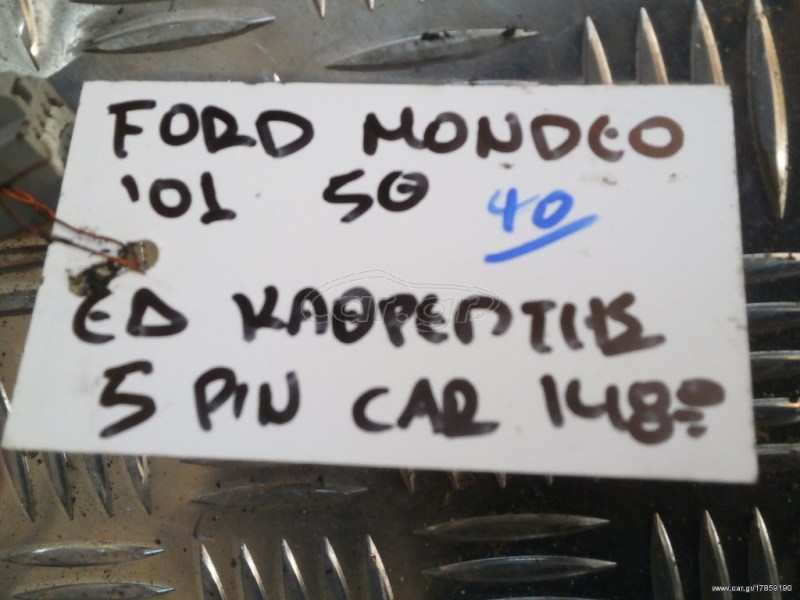 FORD MONDEO
'01 5Θ 40
ΕΔ ΚΑΘΡΕΠΤΗΣ
5 PIN CAR 148
www.car.gr/17859190